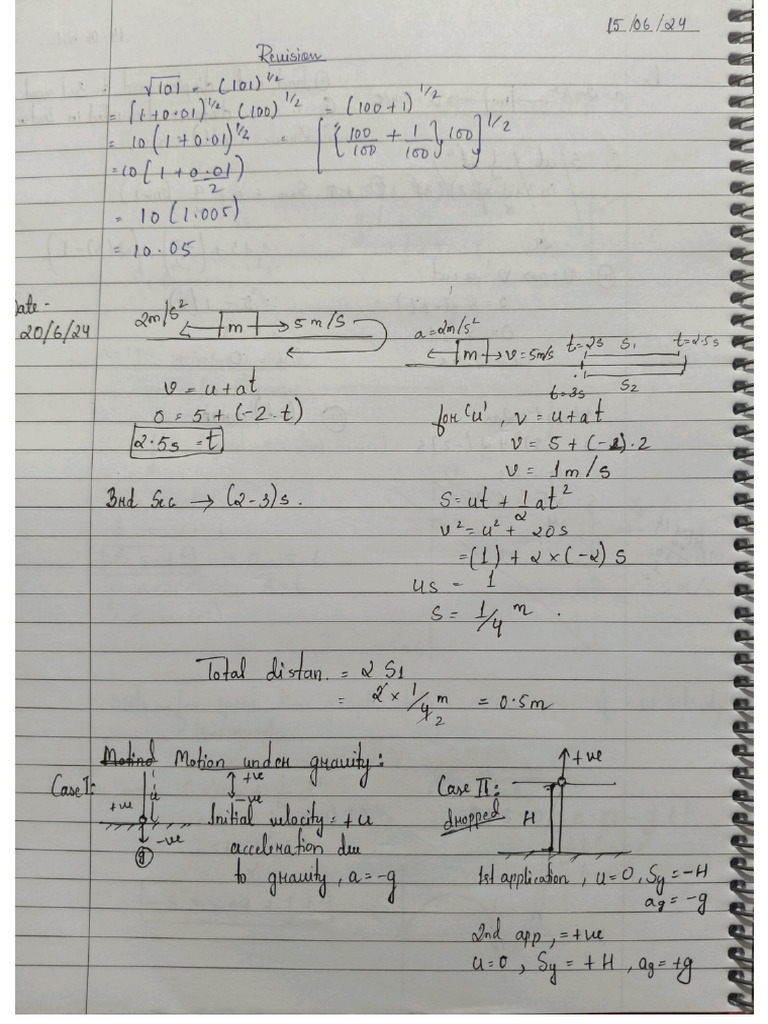 15/06/24
Revision
√101 = (101)^1/2
= (1+0.01)^1/2 (100)^1/2 = (100+1)^1/2
= 10(1+0.01)^1/2 = [{100/100 + 1/100}100]^1/2
=10(1+0.01/2)
= 10(1.005)
= 10.05
Date-
20/6/24
2m/s² m 5m/s
a=2m/s² m v=5m/s t=2s S₁ t=2.5s
t=3s S₂
v = u+at
0 = 5+(-2.t)
2.5s = t
for 'u', v = u+at
v = 5+(-2).2
v = 1m/s
3rd Sec → (2-3)s.
S=ut + 1/2 at²
v²=u² + 20s
=(1) + 2×(-2) S
4s = 1
S = 1/4 m.
Total distan. = 2 S1
= 2 × 1/4 2 m = 0.5m
Motind Motion under gravity:
Case I:
+ve u -ve g
+ve
-ve
Initial velocity = +u
acceleration due
to gravity, a = -g
Case II:
dropped
+ve
H
1st application, u=0, Sy=-H
ag = -g
2nd app, =+ve
u=0, Sy = +H, ag=+g